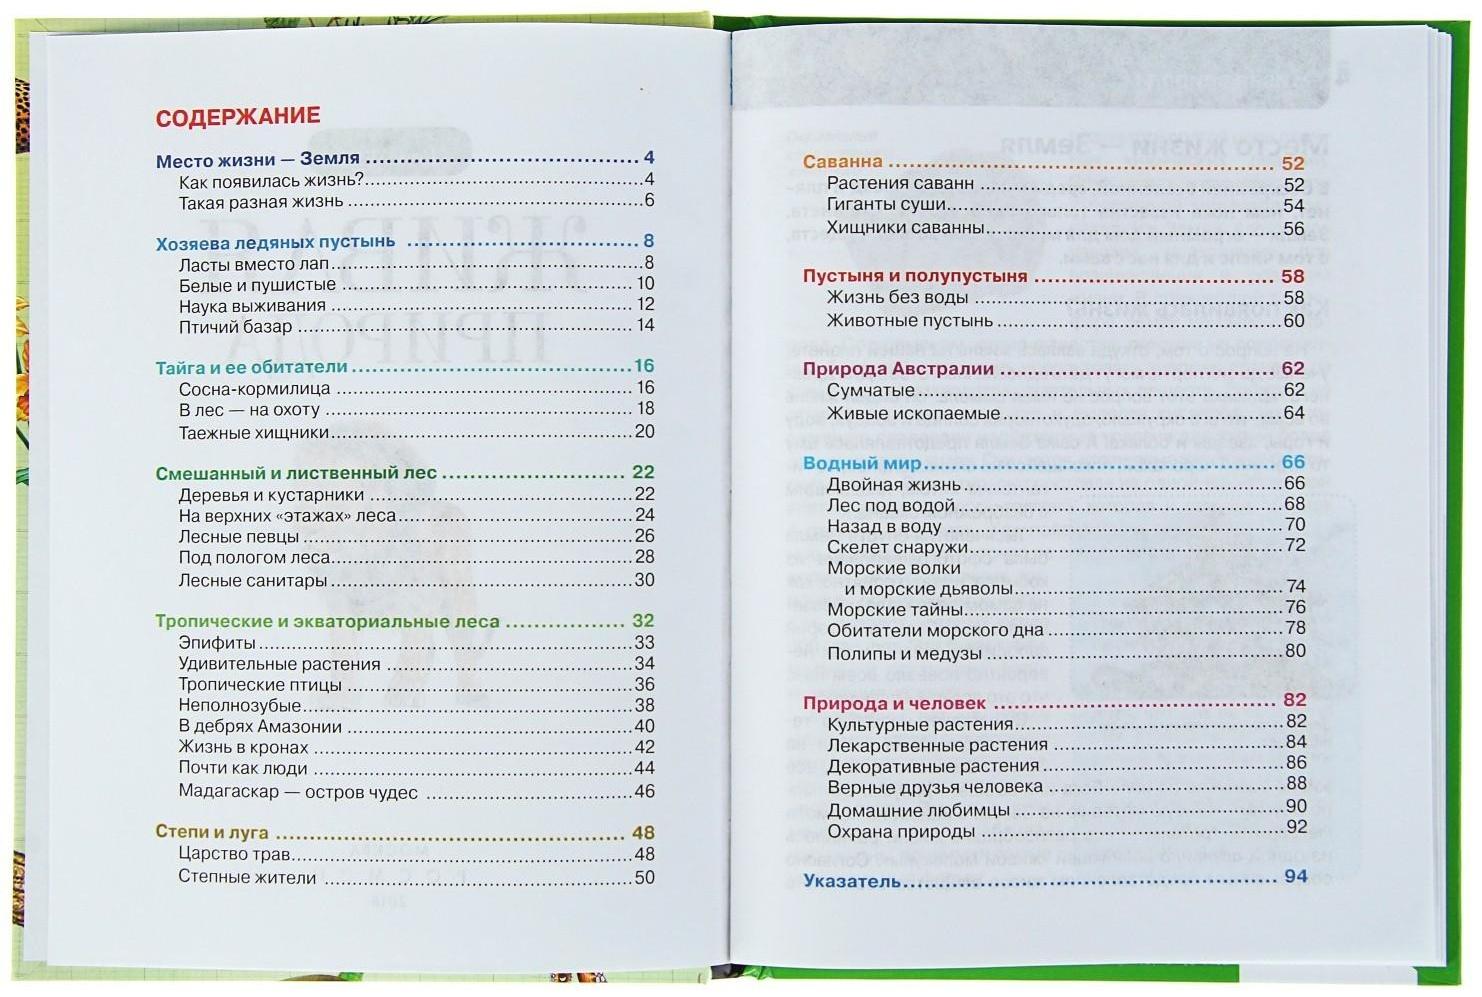 СОДЕРЖАНИЕ
Место жизни — Земля 4
Как появилась жизнь? 4
Такая разная жизнь 6
Хозяева ледяных пустынь 8
Ласты вместо лап 8
Белые и пушистые 10
Наука выживания 12
Птичий базар 14
Тайга и ее обитатели 16
Сосна-кормилица 16
В лес — на охоту 18
Таежные хищники 20
Смешанный и лиственный лес 22
Деревья и кустарники 22
На верхних «этажах» леса 24
Лесные певцы 26
Под пологом леса 28
Лесные санитары 30
Тропические и экваториальные леса 32
Эпифиты 33
Удивительные растения 34
Тропические птицы 36
Неполнозубые 38
В дебрях Амазонии 40
Жизнь в кронах 42
Почти как люди 44
Мадагаскар — остров чудес 46
Степи и луга 48
Царство трав 48
Степные жители 50
Саванна 52
Растения саванн 52
Гиганты суши 54
Хищники саванны 56
Пустыня и полупустыня 58
Жизнь без воды 58
Животные пустынь 60
Природа Австралии 62
Сумчатые 62
Живые ископаемые 64
Водный мир 66
Двойная жизнь 66
Лес под водой 68
Назад в воду 70
Скелет снаружи 72
Морские волки
и морские дьяволы 74
Морские тайны 76
Обитатели морского дна 78
Полипы и медузы 80
Природа и человек 82
Культурные растения 82
Лекарственные растения 84
Декоративные растения 86
Верные друзья человека 88
Домашние любимцы 90
Охрана природы 92
Указатель 94